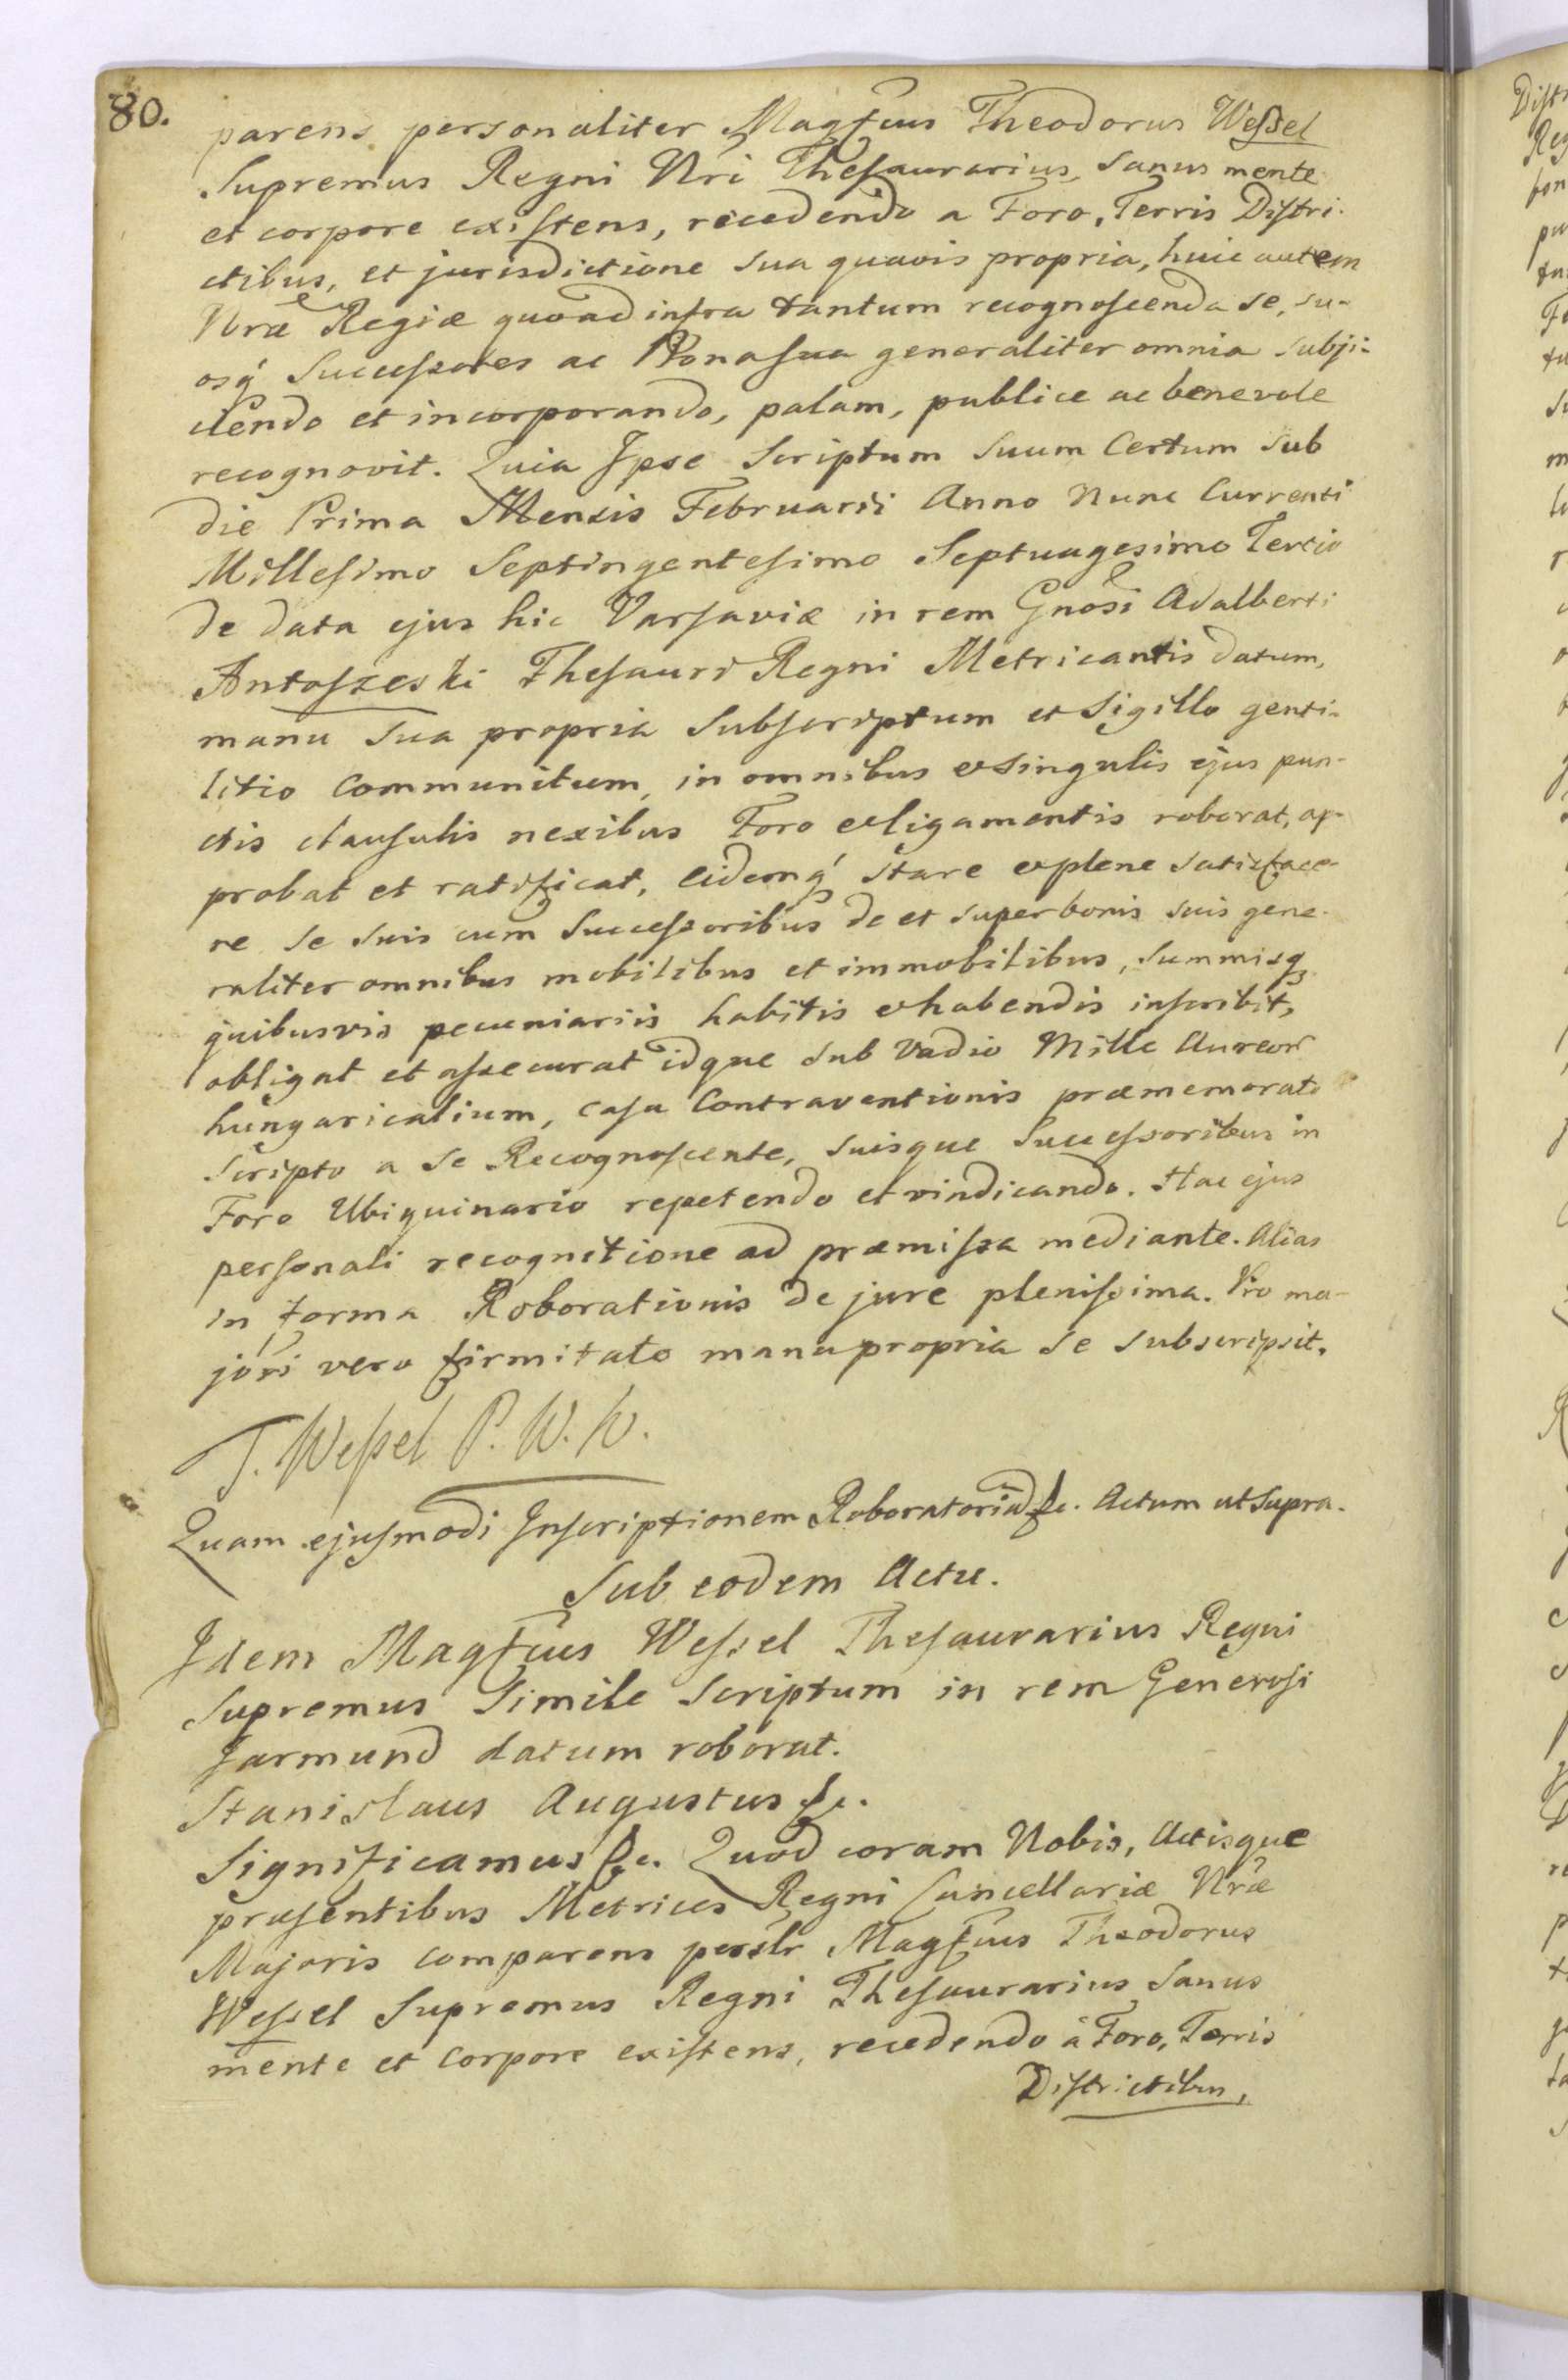 80.
parens personaliter Magfcus Theodorus Wessel
Supremus Regni Nri Thesaurarius, Sanus mente
et corpore existens, recedendo a Foro, Terris Distri-
ctibus, et jurisdictione sua quavis propria, huic autem
Nræ Regiæ quoad infra tantum recognoscenda se, su-
osq́ Successores ac Bona sua generaliter omnia subji-
ciendo et incorporando, palam, publice ac benevole
recognovit. Quia Ipse Scriptum Suum Certum sub
die Prima Mensis Februarii Anno Nunc Currenti
Millesimo Septingentesimo Septuagesimo Tertio
de data ejus hic Varsaviæ in rem Gnosi Adalberti
Antoszeski Thesauri Regni Metricantis datum,
manu sua propria Subscriptum et Sigillo genti-
litio Communitum, in omnibus et singulis ejus pun-
ctis clausulis nexibus Foro et ligamentis roborat, ap-
probat et ratificat, Eidemq́ stare et plene satisface-
re se suis cum Successoribus de et super bonis suis gene-
raliter omnibus mobilibus et immobilibus, Summisq
quibusvis pecuniariis habitis et habendis inscribit,
obligat et assecurat idque sub Vadio Mille Aureor
hungaricalium, casu Contraventionis præmemorato
Scripto a se Recognoscente, suisque Successoribus in
Foro Ubiquinario repetendo et vindicando. Hac ejus
personali recognitione ad præmissa mediante. Alias
in forma Roborationis de jure plenissima. Pro ma-
jori vero firmitate manu propria se subscripsit.
T. Wessel P. W. K.
Quam ejusmodi Inscriptionem Roboratoria &c. Actum ut Supra.
Sub eodem Actu.
Idem Magfcus Wessel Thesaurarius Regni
Supremus Simile Scriptum in rem Generosi
Jarmund datum roborat.
Stanislaus Augustus &c.
Significamus &c. Quod coram Nobis, Actisque
præsentibus Metrices Regni Cancellariæ Nræ
Majoris comparens persltr Magfcus Theodorus
Wessel Supremus Regni Thesaurarius Sanus
mente et Corpore existens, recedendo à Foro, Terris
Districtibus,